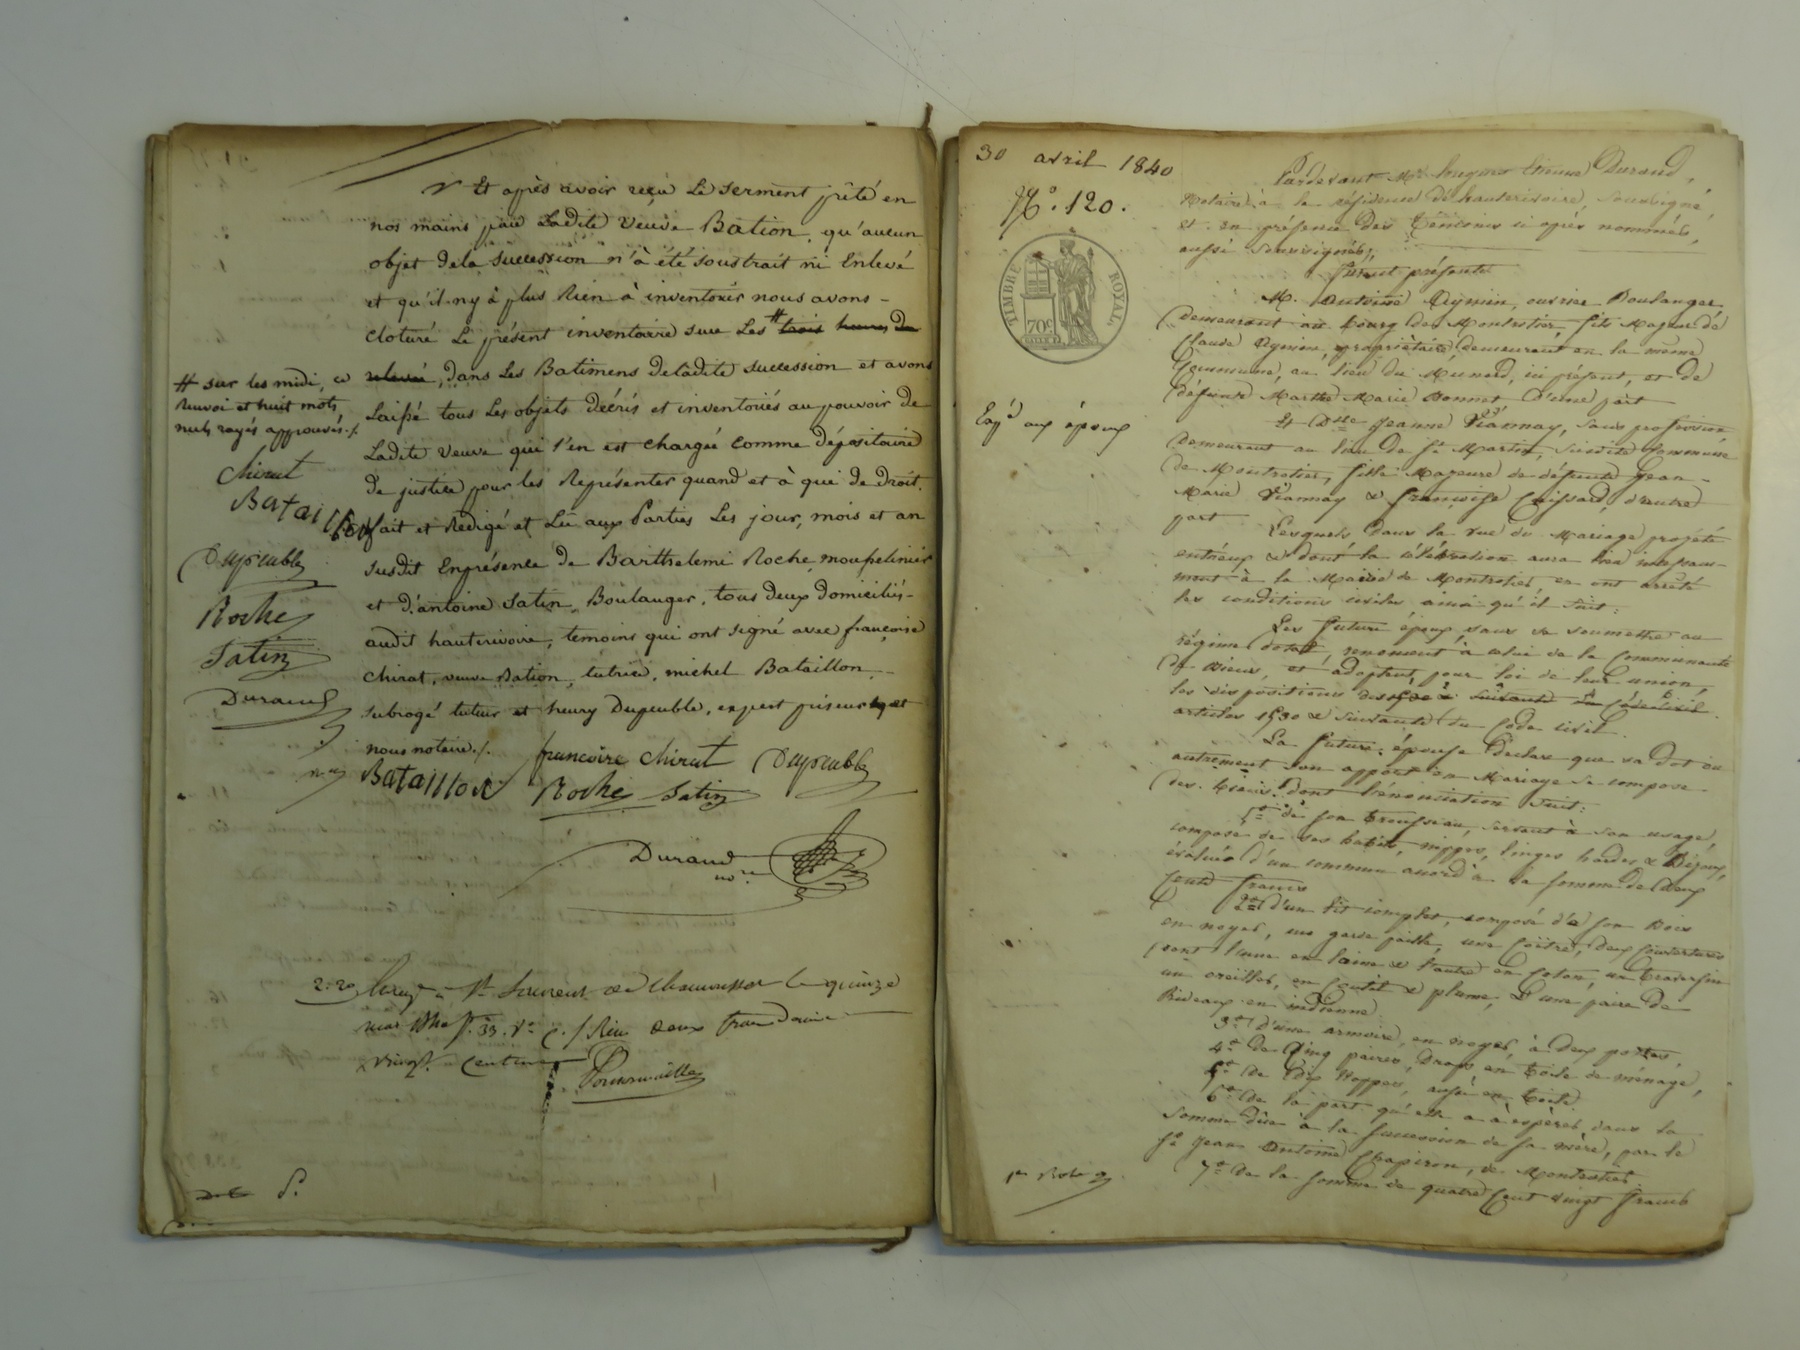 Et après avoir reçu Le serment prêté en
nos mains par Ladite veuve Bation, qu'aucun
objet dela succession n'à été soustrait ni Enlevé
et qu'il ny à plus Rien à inventorier nous avons -
cloturé Le présent inventaire sur Les # trois heures De
relevée, dans Les Batimens Deladite succession et avons
Laissé tous Les objets décris et inventoriés au pouvoir de
Ladite veuve qui s'en est chargée comme dépositaire
De justice pour les Représenter quand et à qui de droit.
fait et Redigé et Lu aux Parties Les jour, mois et an
susdit Enprésence de Barthelemi Roche,
et d'antoine Satin, Boulanger, tous deux domiciliés -
audit hauterivoire, temoins qui ont signé avec françoise
chirat, veuve Bation, tutrice, michel Bataillon, -
subrogé tuteur et henry Dupeuble, expert priseur et
nous notaire ./.
# sur les midi, ce
Renvoi et huit mots
nuls rayés approuvés ./.
chirat
Bataillon
Dupeuble
Roche
Satin
Durand
francoise chirat Dupeuble
Bataillon Roche Satin
Durand
nore
2.20 Enregé à St Laurent de Chamousset le quinze
mai f. 33. Vo c. / Reçu deux francs
vingt centimes
30 avril 1840
No. 120.
TIMBRE ROYAL
70c
Exp aux époux
Pardevant Me Durand,
Notaire à la résidence de hauterivoire, soussigné,
et en présence des témoins ci après nommés,
aussi soussignés,
furent présents
M. Antoine ouvrier Boulanger
Demeurant au bourg de Montrotier, fils Majeur de
Claude propriétaire, demeurant en la même
Commune, au lieu du ici présent, et de
défunte Marthe Marie Bonnat D'une part
Et Dlle Jeanne Viannay, sans profession
Demeurant au lieu de St Martin, susdite Commune
de Montrotier, fille Majeure de défunts Jean -
Marie Viannay & Françoise d'autre
part
Lesquels dans la vue du Mariage projeté
entr'eux & dont la célébration aura lieu incessam-
ment à la Mairie de Montrotier, en ont arrêté
les conditions civiles ainsi qu'il suit:
Les futurs époux sans se soumettre au
régime dotal, renoncent à celui de la Communauté
de Biens, et adoptent, pour loi de leur union,
les dispositions des
articles 1530 & suivants du Code civil.
La future épouse Déclare que sa Dot ou
autrement son apport en Mariage se compose
des biens dont l'énonciation suit:
1o de son trousseau, servant à son usage,
composé de ses habits, nippes, linges hardes & Bijoux,
évalués d'un commun accord à la somme de Deux
Cents francs
2o d'un lit complet, composé d'e son Bois
en noyer, une garde paille, une coitre, deux Couvertures
dont l'une en laine & l'autre en Coton, un traversin
un oreiller, en Coutil & plume, & une paire de
Rideaux en indienne
3o d'une armoire, en noyer, à deux portes,
4o de Cinq paires, Draps en toile de ménage,
5o De Dix Nappes, aussi en toile
6o De la part qu'elle a à espérer dans la
somme dûe à la succession de sa mère, par le
Sr Jean Antoine Chapiron, de Montrotier.
7o De la somme de quatre Cent vingt francs
1er Role